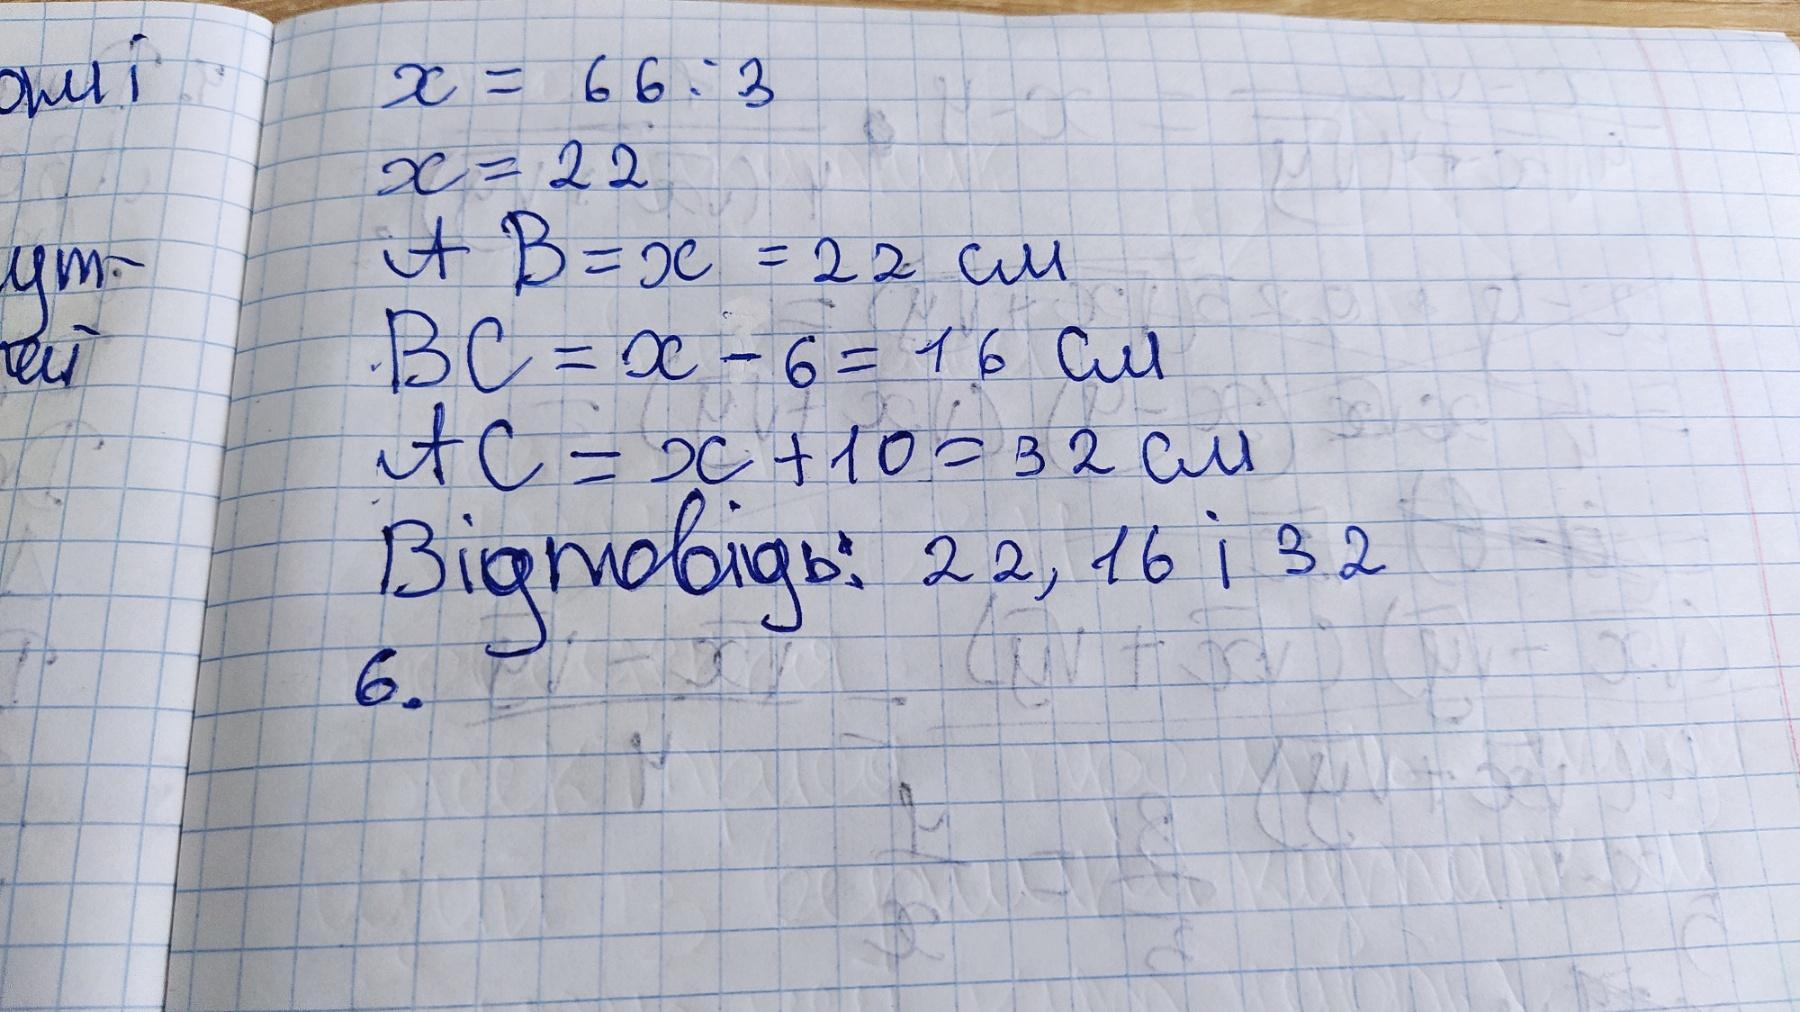 x = 66 : 3
x = 22
AB = x = 22 см
BC = x - 6 = 16 см
AC = x + 10 = 32 см
Відповідь: 22, 16 і 32
6.